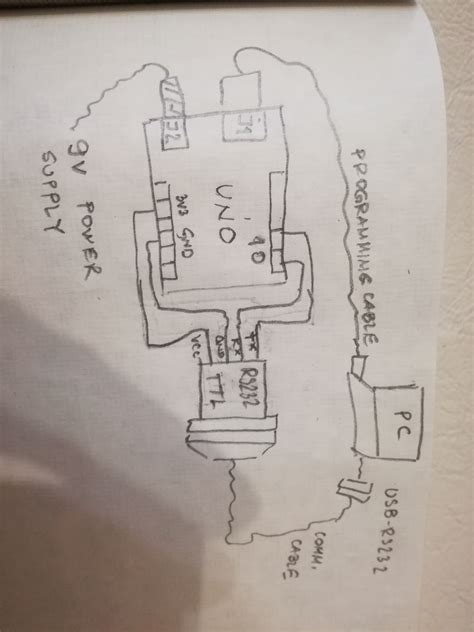 J2
J1
9V POWER
SUPPLY
UNO
3V3
GND
1 0
PROGRAMMING CABLE
VCC
GND
RX
TX
TTL
RS232
PC
USB-RS232
COMM.
CABLE